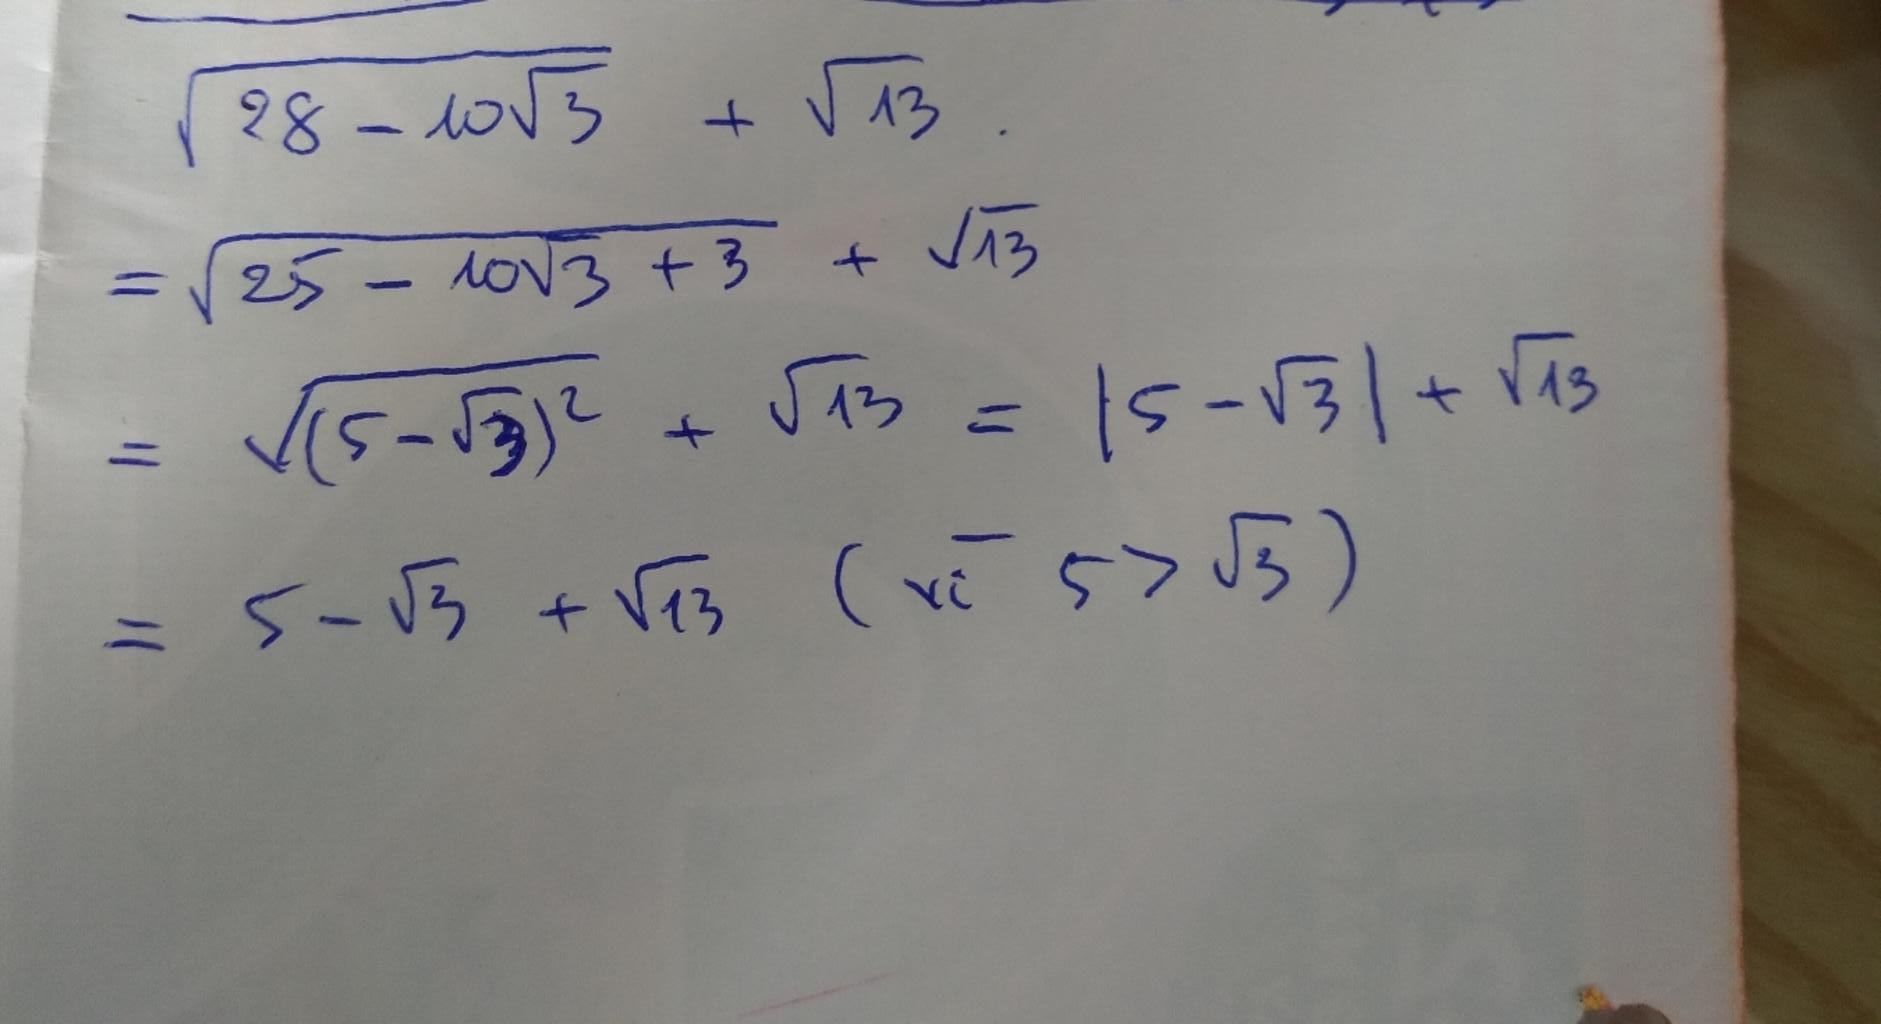 √(28 - 10√3) + √13 .
= √(25 - 10√3 + 3) + √13
= √((5 - √3)²) + √13 = |5 - √3| + √13
= 5 - √3 + √13 (vì 5 > √3)